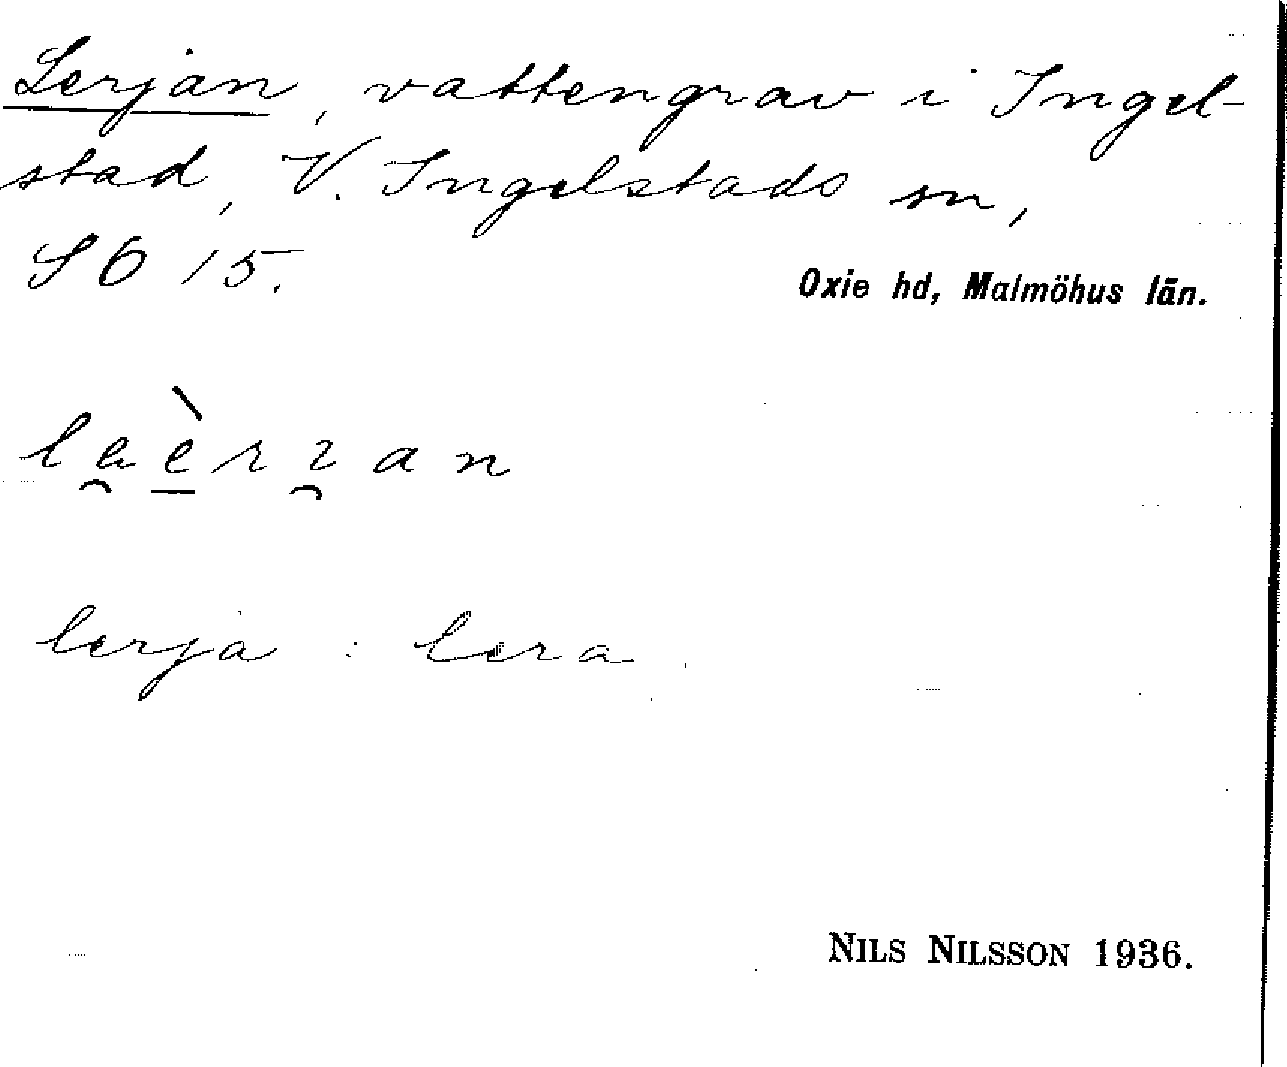 Lerjan, vattengrav i Ingel-
stad, V. Ingelstads sn,
SO 15.
Oxie hd, Malmöhus län.
lerja : lera.
NILS NILSSON 1936.